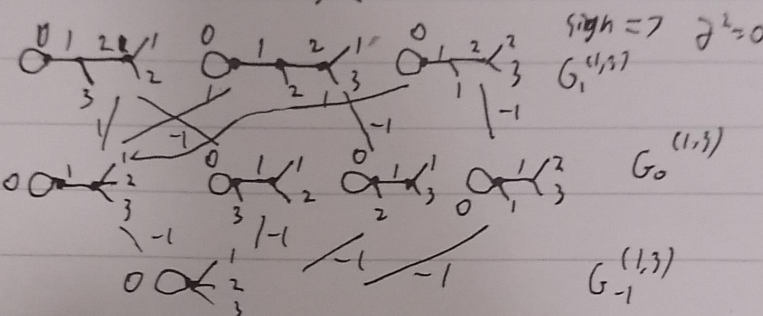 sign => ∂²=0
0 1 2 1 2 3
0 1 2 1 2 3
0 1 2 2 3 1
G₁^(1,3)
1 -1 1 1 -1 -1
0 1 1 2 3
0 1 1 2 3
0 1 1 3 2
0 1 2 3 1
G₀^(1,3)
-1 -1 -1 -1
0 1 2 3
G₋₁^(1,3)